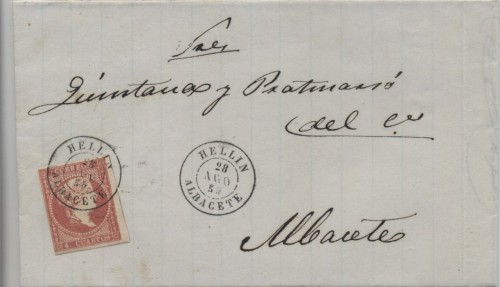 Sres
Quintana y Pratmarsó
del Co
HELLIN
ALBACETE
HELLIN
28
AGO
ALBACETE
4 CUARTOS
Albacete